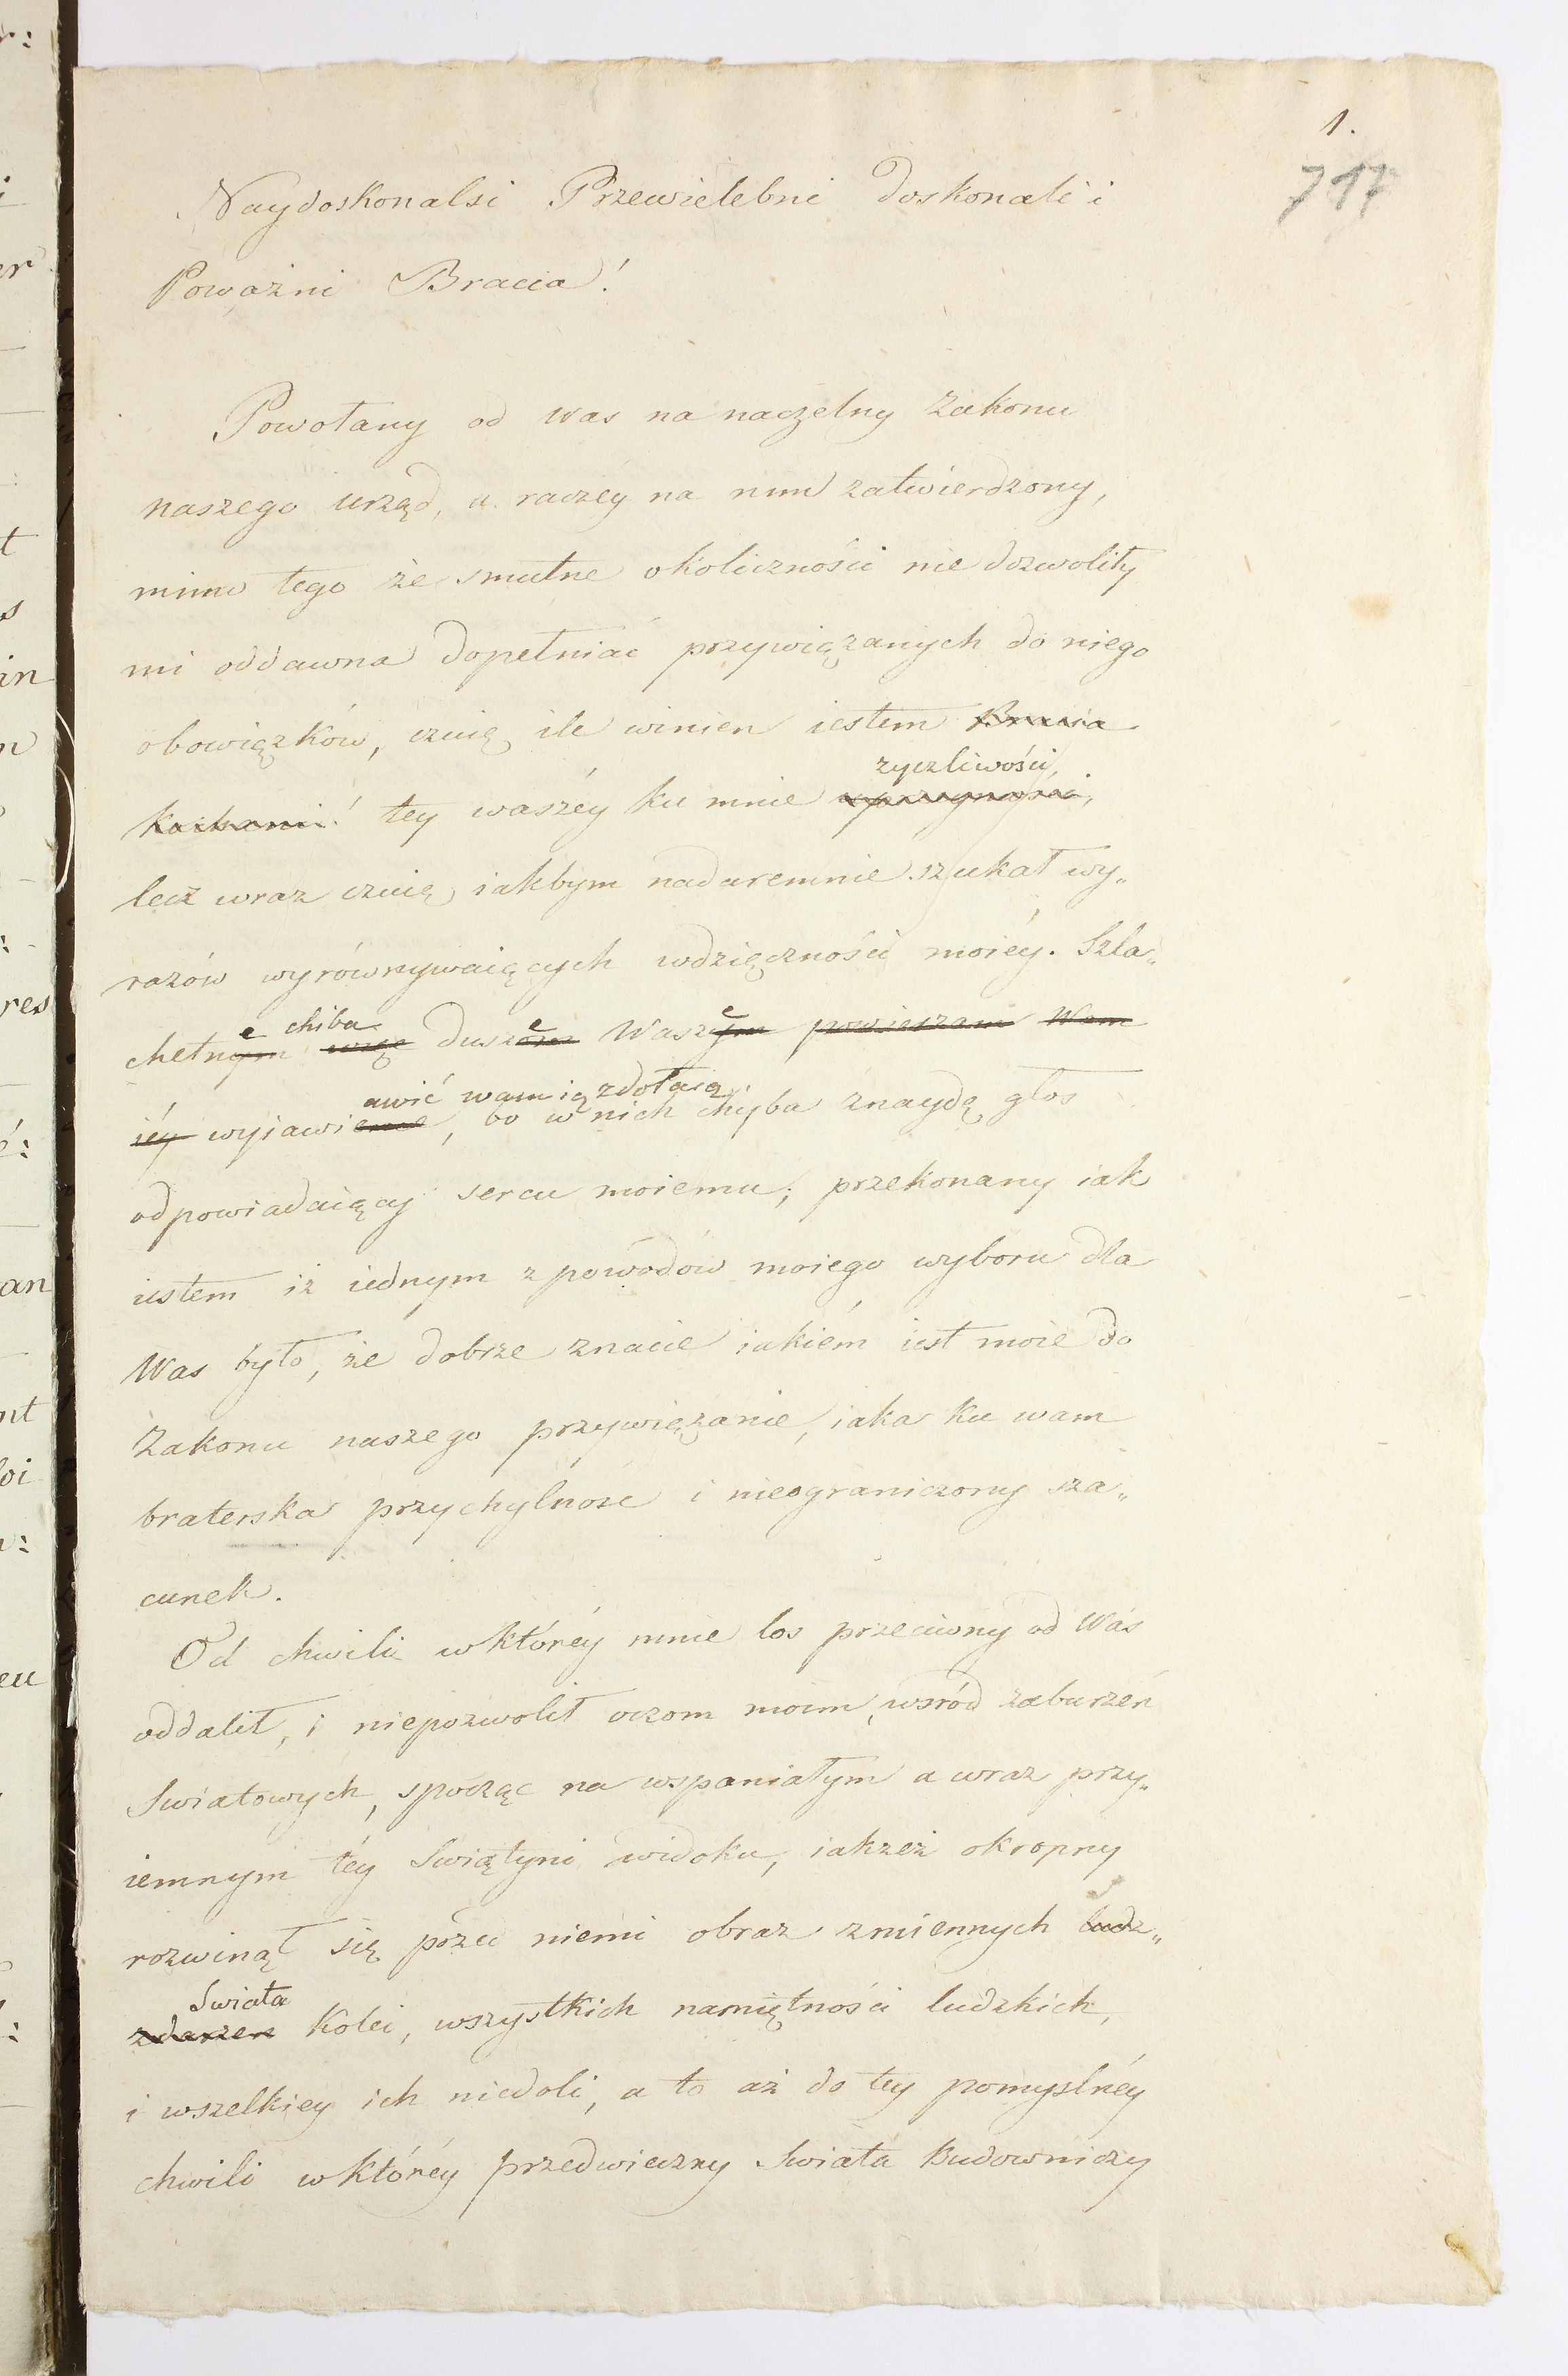 1.
717
Naydoskonalsi Przewielebni doskonali i
Poważni Bracia!
Powołany od was na naczelny Zakonu
naszego urząd, a raczéy na nim zatwierdzony,
mimo tego że smutne okoliczności nie dozwoliły
mi oddawna dopełniać przywiązanych do niego
obowiązków, czuię ile winien iestem Bracia
życzliwości,
kochani! tey waszéy ku mnie
lecz wraz czuię, iakbym nadaremnie szukał wy„
razów wyrównywaiących wdzięczności moiéy. Szla„
e chiba e e
chetnym więc duszom Waszym powierzam Wam
awić wam ią zdołaią
iéy wyiawienie, bo w nich chyba znaydę głos
odpowiadaiący sercu moiemu; przekonany iak
iestem iż iednym z powodów moiego wyboru dla
Was było, że dobrze znacie iakiém iest moie do
Zakonu naszego przywiązanie, iaka ku wam
braterska przychylność i nieograniczony sza„
cunek.
Od chwili w któréy mnie los przeciwny od Was
oddalił, i niepozwolił oczom moim, wsród zaburzeń
Swiatowych, spocząc na wspaniałym a wraz przy„
iemnym téy Swiątyni widoku, iakżeż okropny
rozwinął się przed niemi obraz zmiennych ludz„
Swiata
zdarzen kolei, wszystkich namiętności ludzkich,
i wszelkiey ich niedoli, a to aż do tey pomyslnéy
chwili w któréy przedwieczny Swiata Budowniczy